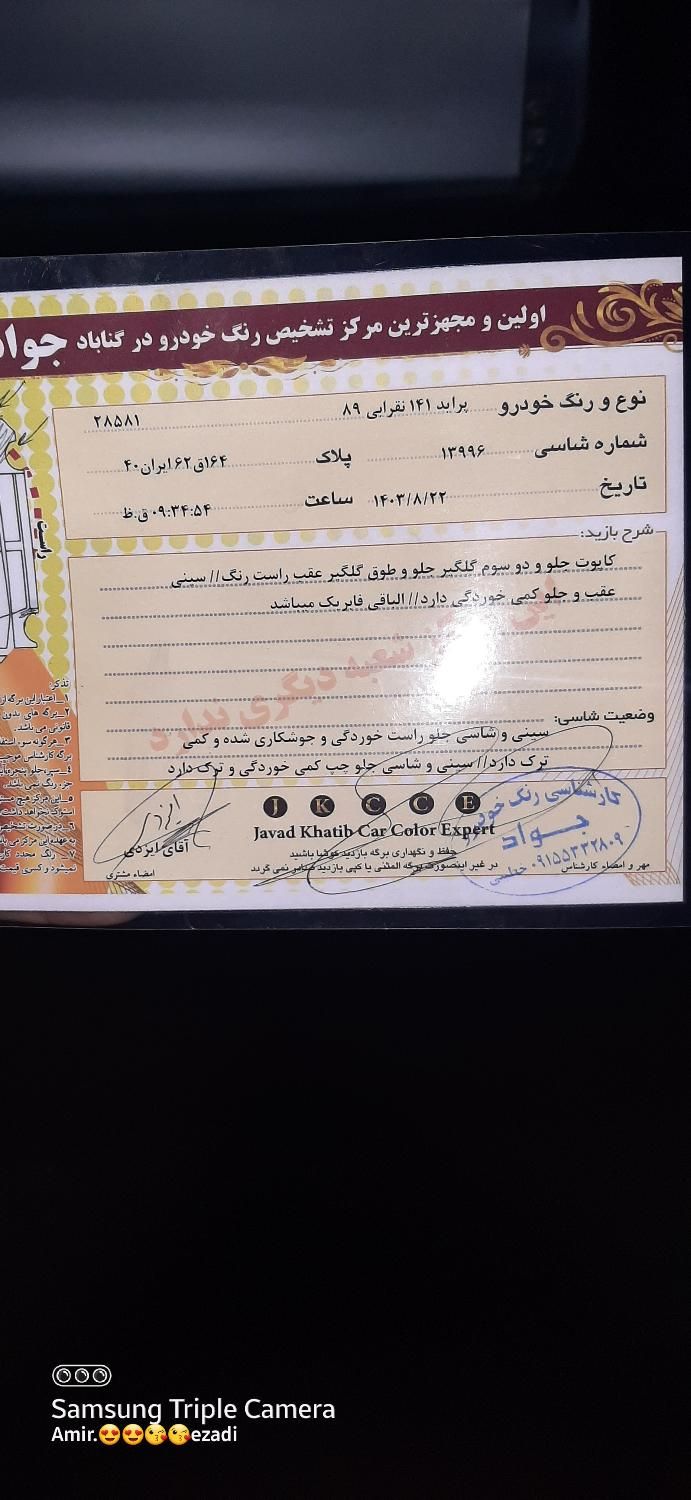 اولین و مجهزترین مرکز تشخیص رنگ خودرو در گناباد
نوع و رنگ خودرو پراید ۱۴۱ نقرایی ۸۹ ۲۸۵۸۱
شماره شاسی ۱۳۹۹۶ پلاک ۱۶۴ق۶۲ایران۴۰
تاریخ ۱۴۰۳/۸/۲۲ ساعت ۰۹:۳۴:۵۴ ق.ظ
شرح بازید:
کاپوت جلو و دو سوم گلگیر جلو و طوق گلگیر عقب راست رنگ// سینی
عقب و جلو کمی خوردگی دارد// الباقی فابریک میباشد
شعبه دیگری ندارد
وضعیت شاسی:
سینی و شاسی جلو راست خوردگی و جوشکاری شده و کمی
ترک دارد// سینی و شاسی جلو چپ کمی خوردگی و ترک دارد
راست
تذکر:
J K C C E
Javad Khatib Car Color Expert
حفظ و نگهداری برگه بازدید کوشا باشید
در غیر اینصورت برگه المثنی یا کپی بازدید صادر نمی گردد
آقای ایزدی
امضاء مشتری
مهر و امضاء کارشناس
کارشناسی رنگ خودرو
جواد
۰۹۱۵۵۳۳۲۸۰۹
Samsung Triple Camera
Amir.😍😍😘😘ezadi